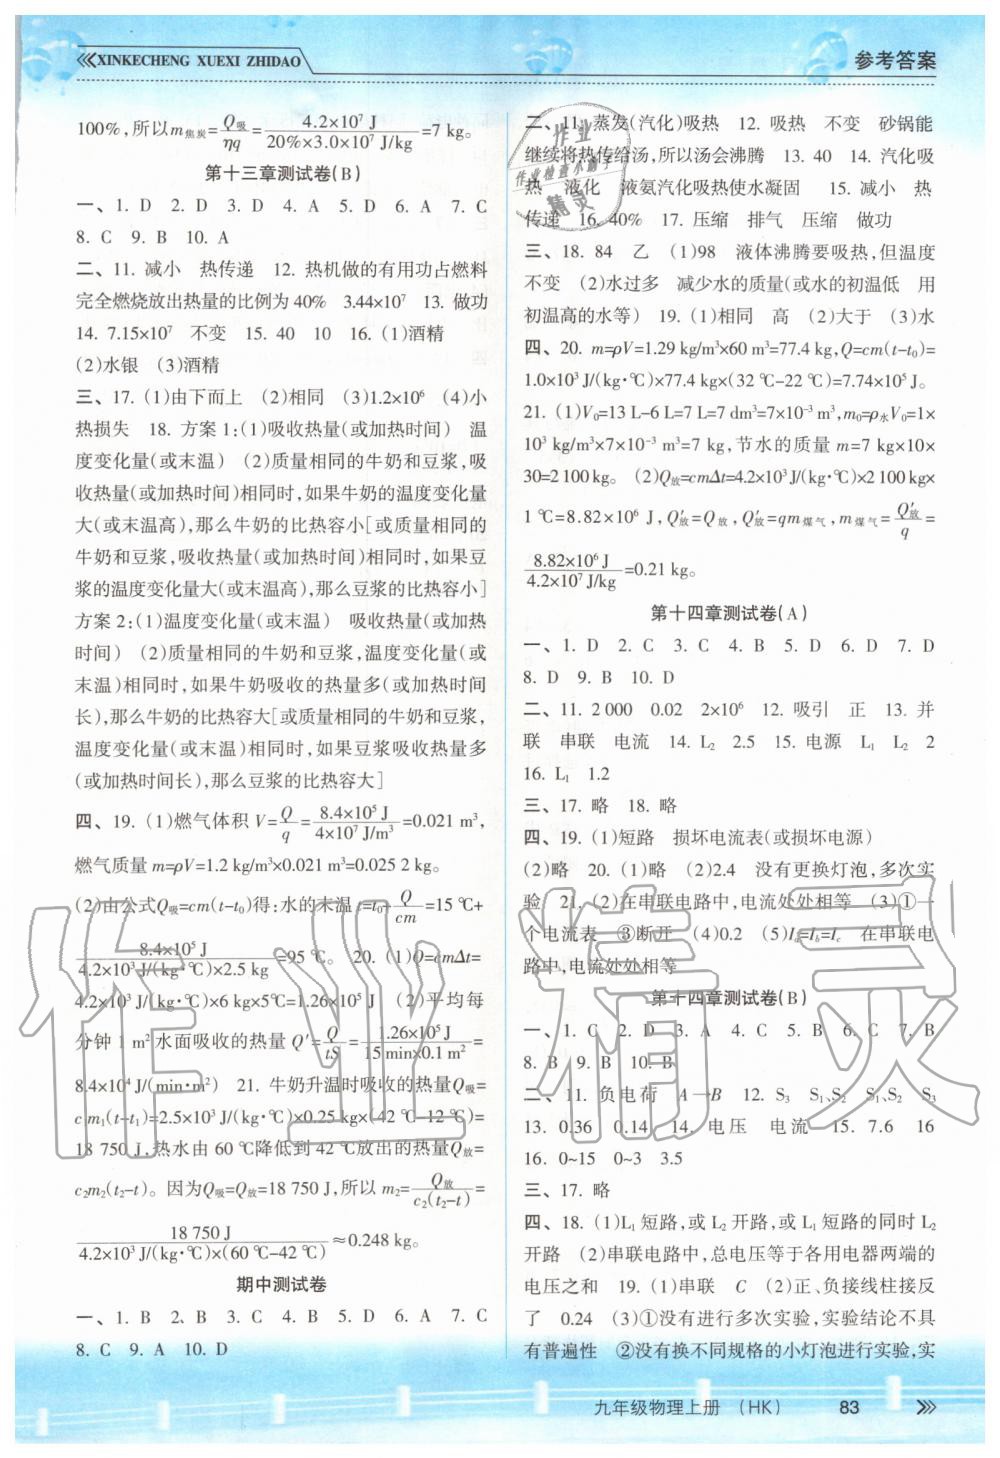 XINKECHENG XUEXI ZHIDAO
参考答案
100%,所以m焦炭=Q吸/ηq=4.2×10⁷ J/20%×3.0×10⁷ J/kg=7 kg。
第十三章测试卷(B)
一、1. D 2. D 3. D 4. A 5. D 6. A 7. C
8. C 9. B 10. A
二、11. 减小 热传递 12. 热机做的有用功占燃料
完全燃烧放出热量的比例为40% 3.44×10⁷ 13. 做功
14. 7.15×10⁷ 不变 15. 40 10 16. (1)酒精
(2)水银 (3)酒精
三、17. (1)由下而上 (2)相同 (3)1.2×10⁶ (4)小
热损失 18. 方案1:(1)吸收热量(或加热时间) 温
度变化量(或末温) (2)质量相同的牛奶和豆浆,吸
收热量(或加热时间)相同时,如果牛奶的温度变化量
大(或末温高),那么牛奶的比热容小[或质量相同的
牛奶和豆浆,吸收热量(或加热时间)相同时,如果豆
浆的温度变化量大(或末温高),那么豆浆的比热容小]
方案2:(1)温度变化量(或末温) 吸收热量(或加热
时间) (2)质量相同的牛奶和豆浆,温度变化量(或
末温)相同时,如果牛奶吸收的热量多(或加热时间
长),那么牛奶的比热容大[或质量相同的牛奶和豆浆,
温度变化量(或末温)相同时,如果豆浆吸收热量多
(或加热时间长),那么豆浆的比热容大]
四、19. (1)燃气体积 V=Q/q=8.4×10⁵ J/4×10⁷ J/m³=0.021 m³,
燃气质量 m=ρV=1.2 kg/m³×0.021 m³=0.025 2 kg。
(2)由公式Q吸=cm(t-t₀)得:水的末温 t=t₀+Q/cm=15 ℃+
8.4×10⁵ J/4.2×10³ J/(kg·℃)×2.5 kg=95 ℃。 20. (1)Q=cmΔt=
4.2×10³ J/(kg·℃)×6 kg×5℃=1.26×10⁵ J (2)平均每
分钟1 m²水面吸收的热量 Q′=Q/tS=1.26×10⁵ J/15 min×0.1 m²=
8.4×10⁴ J/(min·m²) 21. 牛奶升温时吸收的热量Q吸=
c₁m₁(t-t₁)=2.5×10³ J/(kg·℃)×0.25 kg×(42 ℃-12 ℃)=
18 750 J,热水由60 ℃降低到42 ℃放出的热量Q放=
c₂m₂(t₂-t)。因为Q吸=Q放=18 750 J,所以 m₂=Q放/c₂(t₂-t)=
18 750 J/4.2×10³ J/(kg·℃)×(60 ℃-42 ℃)≈0.248 kg。
期中测试卷
一、1. B 2. B 3. C 4. B 5. D 6. A 7. C
8. C 9. A 10. D
二、11. 蒸发(汽化)吸热 12. 吸热 不变 砂锅能
继续将热传给汤,所以汤会沸腾 13. 40 14. 汽化吸
热 液化 液氨汽化吸热使水凝固 15. 减小 热
传递 16. 40% 17. 压缩 排气 压缩 做功
三、18. 84 乙 (1)98 液体沸腾要吸热,但温度
不变 (2)水过多 减少水的质量(或水的初温低 用
初温高的水等) 19. (1)相同 高 (2)大于 (3)水
四、20. m=ρV=1.29 kg/m³×60 m³=77.4 kg,Q=cm(t-t₀)=
1.0×10³ J/(kg·℃)×77.4 kg×(32 ℃-22 ℃)=7.74×10⁵ J。
21. (1)V₀=13 L-6 L=7 L=7 dm³=7×10⁻³ m³,m₀=ρ水V₀=1×
10³ kg/m³×7×10⁻³ m³=7 kg,节水的质量 m=7 kg×10×
30=2 100 kg。 (2)Q放=cmΔt=4.2×10³ J/(kg·℃)×2 100 kg×
1 ℃=8.82×10⁶ J,Q′放=Q放,Q′放=qm煤气,m煤气=Q′放/q=
8.82×10⁶ J/4.2×10⁷ J/kg=0.21 kg。
第十四章测试卷(A)
一、1. D 2. C 3. C 4. B 5. D 6. D 7. D
8. D 9. B 10. D
二、11. 2 000 0.02 2×10⁶ 12. 吸引 正 13. 并
联 串联 电流 14. L₂ 2.5 15. 电源 L₁ L₂ 2
16. L₁ 1.2
三、17. 略 18. 略
四、19. (1)短路 损坏电流表(或损坏电源)
(2)略 20. (1)略 (2)2.4 没有更换灯泡,多次实
验 21. (2)在串联电路中,电流处处相等 (3)①一
个电流表 ③断开 (4)0.2 (5)Iₐ=I_b=I_c 在串联电
路中,电流处处相等
第十四章测试卷(B)
一、1. C 2. D 3. A 4. C 5. B 6. C 7. B
8. B 9. B 10. B
二、11. 负电荷 A→B 12. S₃ S₁、S₂ S₁、S₂ S₃
13. 0.36 0.14 14. 电压 电流 15. 7.6 16
16. 0~15 0~3 3.5
三、17. 略
四、18. (1)L₁ 短路,或 L₂ 开路,或 L₁ 短路的同时 L₂
开路 (2)串联电路中,总电压等于各用电器两端的
电压之和 19. (1)串联 C (2)正、负接线柱接反
了 0.24 (3)①没有进行多次实验,实验结论不具
有普遍性 ②没有换不同规格的小灯泡进行实验,实
九年级物理上册 (HK) 83
作业
作业检查小助手
精灵
作业精灵